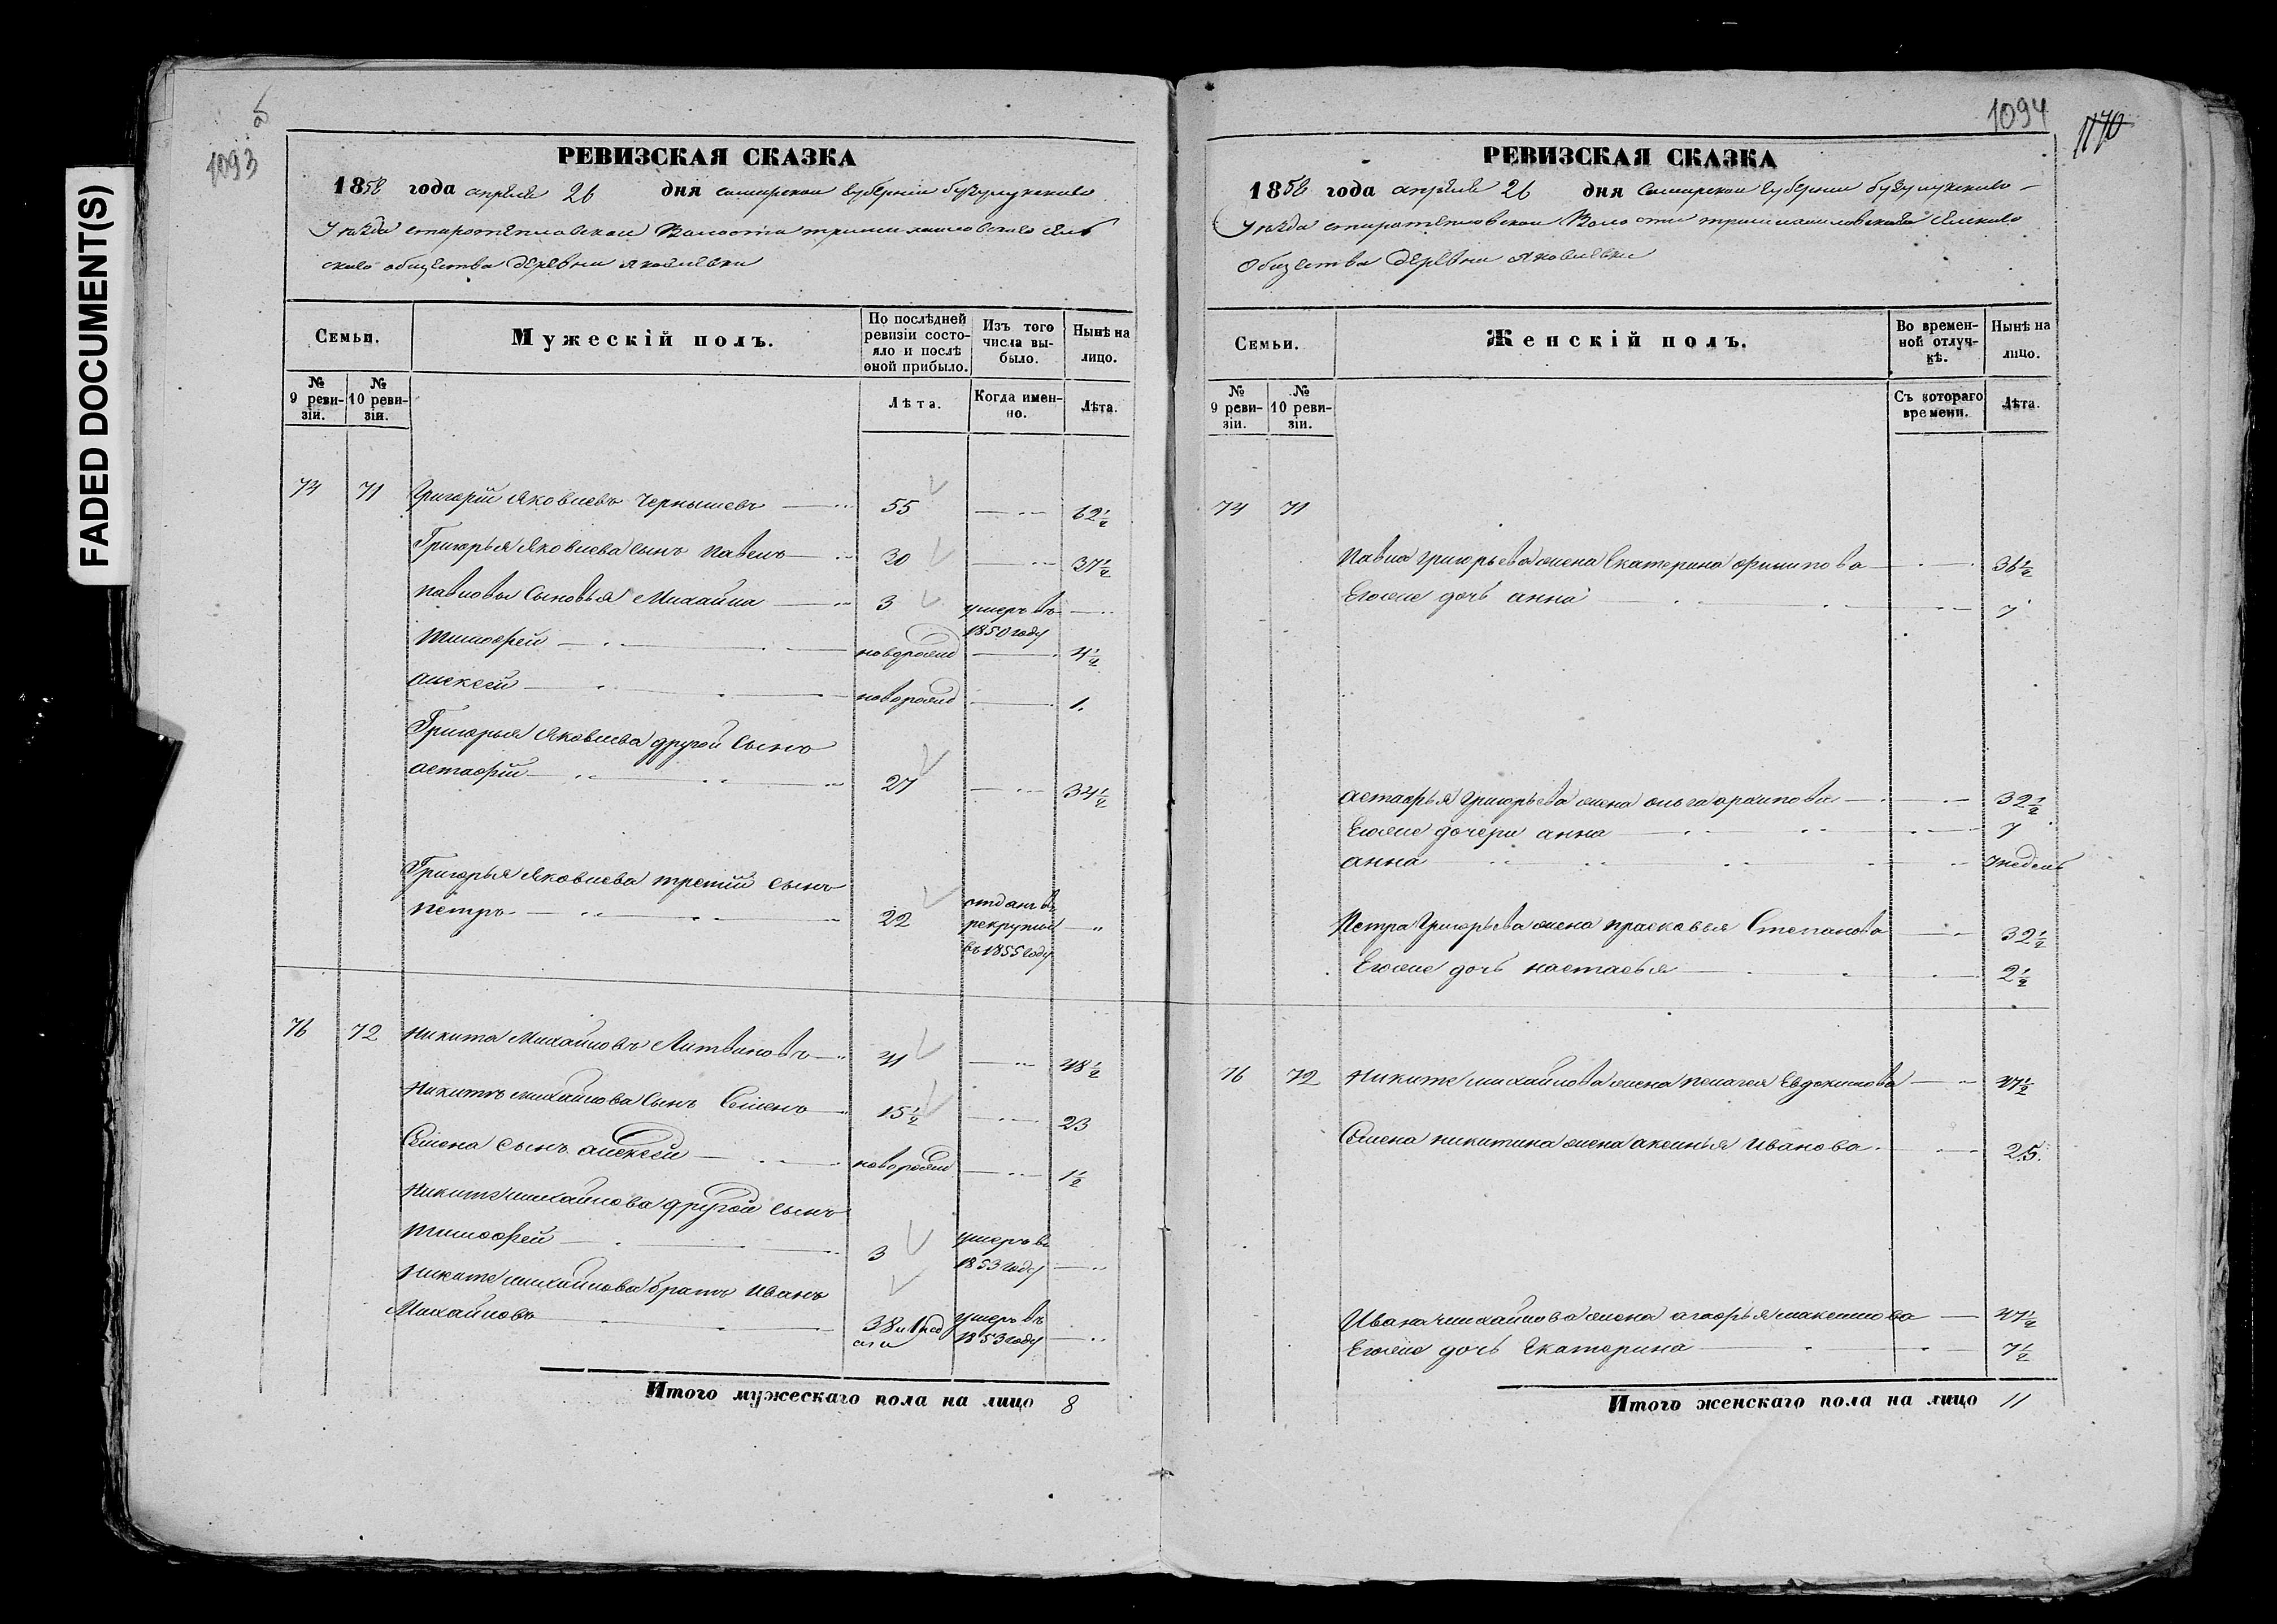 FADED DOCUMENT(S)
1093
РЕВИЗСКАЯ СКАЗКА
1858 года апреля 26 дня самарской губернии бузулукскаго
Уезда старотепловской Волости тришихаиловскаго сель
скаго общества деревни яковлевки
Семьи.
Мужескій полъ.
По послѣдней ревизіи состояло и послѣ оной прибыло.
Изъ того числа выбыло.
Нынѣ на лицо.
№ 9 ревизіи.
№ 10 ревизіи.
Лѣта.
Когда именно.
Лѣта.
74 71 Григорій Яковлевъ Чернышевъ 55 62½
Григорья Яковлева сынъ павелъ 30 37½
павловы Сыновья Михайла 3 умеръ въ 1850 году
Тимофей новорожд 4½
алексей новорожд 1.
Григорья Яковлева другой сынъ
астафій 27 34½
Григорья Яковлева третій сынъ
петръ 22 отданъ въ рекруты въ 1855 году
76 72 Никита Михайловъ Литвиновъ 41 48½
Никиты михайлова Сынъ Семенъ 15½ 23
Семена сынъ алексей новорожд 1½
Никиты михайлова другой сынъ
тимофей 3 умеръ въ 1853 году
Никиты михайлова братъ иванъ
Михайловъ 38 умеръ въ 1853 году
Итого мужескаго пола на лицо 8
1094
1170
РЕВИЗСКАЯ СКАЗКА
1858 года апреля 26 дня самарской губернии бузулукскаго
Уезда старотепловской Волости сельскаго
Общества деревни яковлевки
Семьи.
Женскій полъ.
Во временной отлучкѣ.
Нынѣ на лицо.
№ 9 ревизіи.
№ 10 ревизіи.
Съ котораго времени.
Лѣта.
74 71
Павла григорьева жена Екатерина филипова 36½
Егоже дочь анна 7
астафья григорьева жена ольга архипова 32½
Егоже дочери анна 7
анна 7 недель
Петра Григорьева жена прасковья Степанова 32½
Егоже дочь настасья 2½
76 72 Никиты михайлова жена пелагея Евдокимова 47½
Семена никитина жена аксинья иванова 25.
Ивана михайлова жена агафья максимова 47½
Егоже дочь Екатерина 7½
Итого женскаго пола на лицо 11